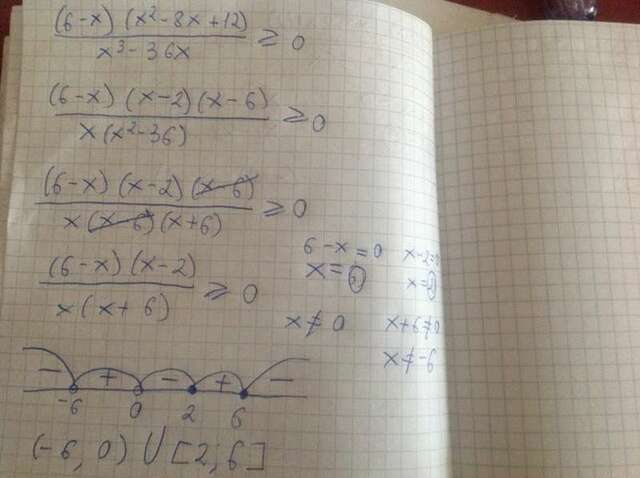 (6-x) (x²-8x+12) / x³-36x ≥ 0
(6-x) (x-2) (x-6) / x(x²-36) ≥ 0
(6-x) (x-2) (x-6) / x(x-6)(x+6) ≥ 0
(6-x) (x-2) / x(x+6) ≥ 0
6-x=0 x-2=0
x=6 x=2
x≠0 x+6≠0
x≠-6
- + - + -
-6 0 2 6
(-6, 0) ∪ [2; 6]